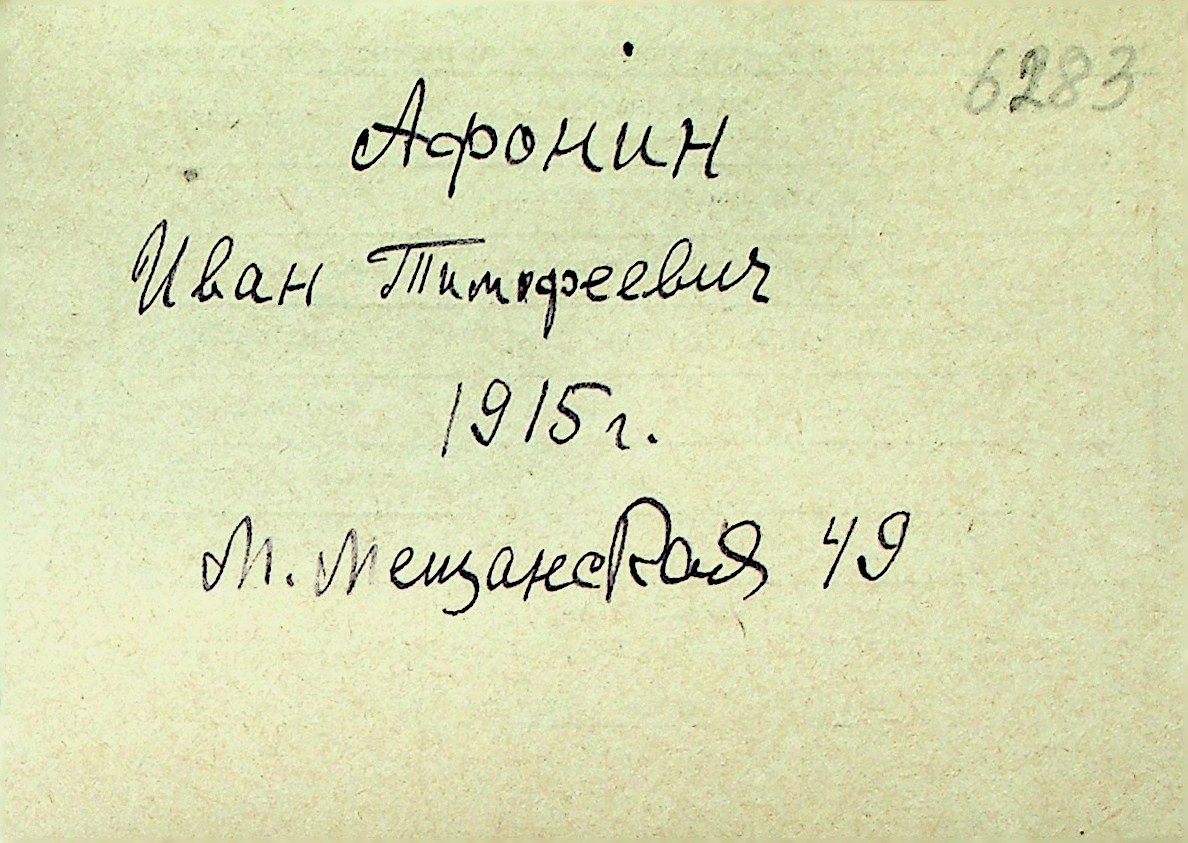 6283
Афонин
Иван Тимофеевич
1915 г.
М. Мещанская 49